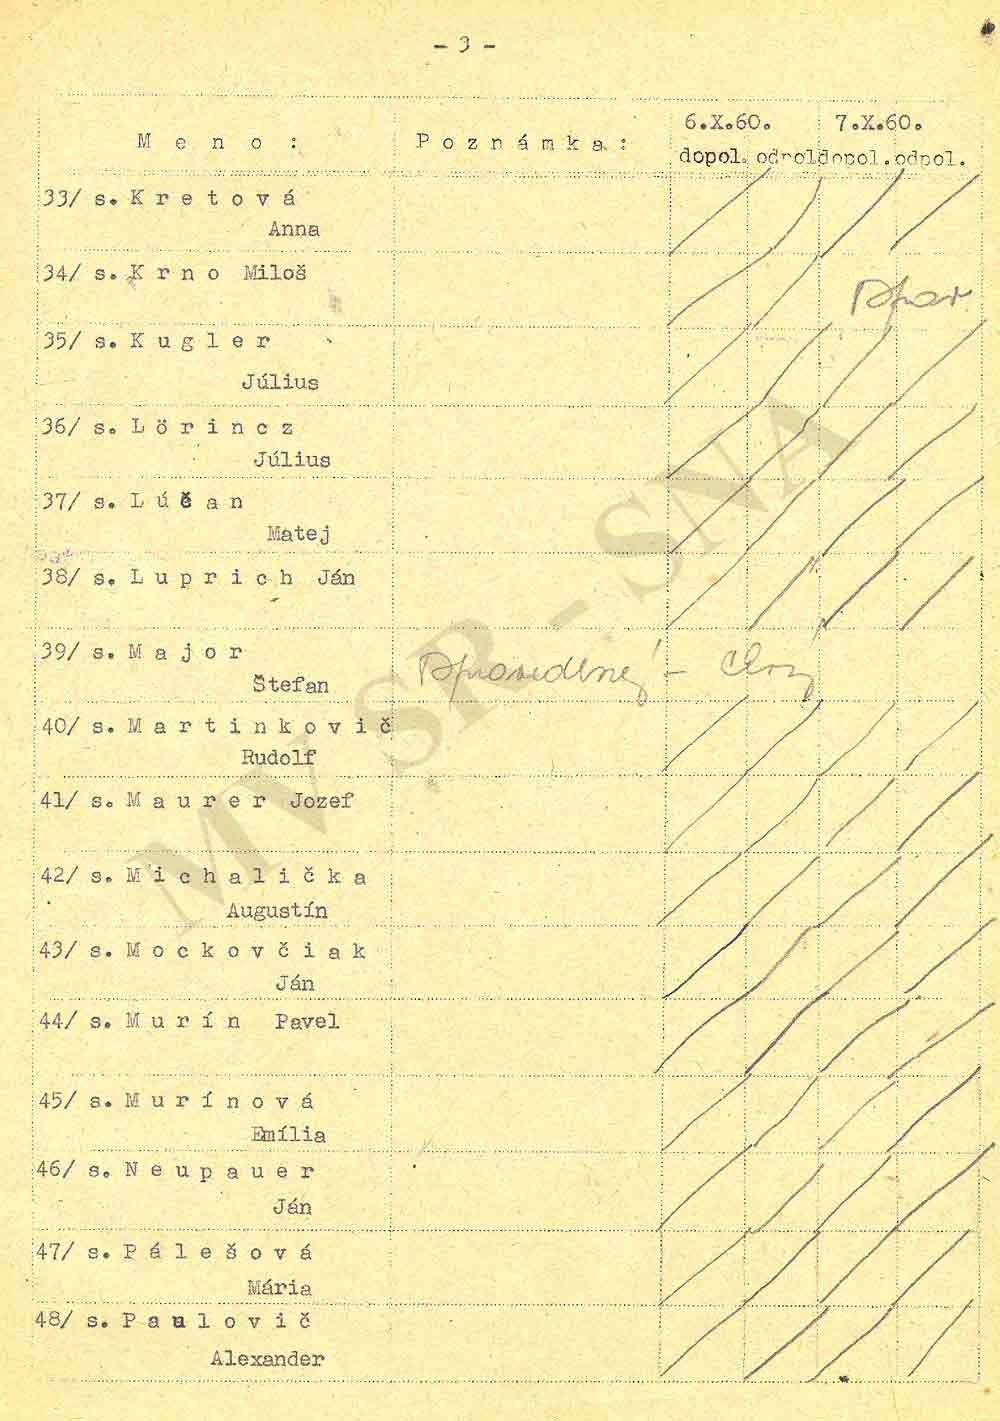 - 3 -
6.X.60. 7.X.60.
M e n o : P o z n á m k a :
dopol. odpol dopol. odpol.
33/ s. K r e t o v á
Anna
34/ s. K r n o Miloš
35/ s. K u g l e r
Július
36/ s. L ö r i n c z
Július
37/ s. L ú č a n
Matej
38/ s. L u p r i c h Ján
39/ s. M a j o r
Štefan
40/ s. M a r t i n k o v i č
Rudolf
41/ s. M a u r e r Jozef
42/ s. M i c h a l i č k a
Augustín
43/ s. M o c k o v č i a k
Ján
44/ s. M u r í n Pavel
45/ s. M u r í n o v á
Emília
46/ s. N e u p a u e r
Ján
47/ s. P á l e š o v á
Mária
48/ s. P a u l o v i č
Alexander
MV SR - SNA